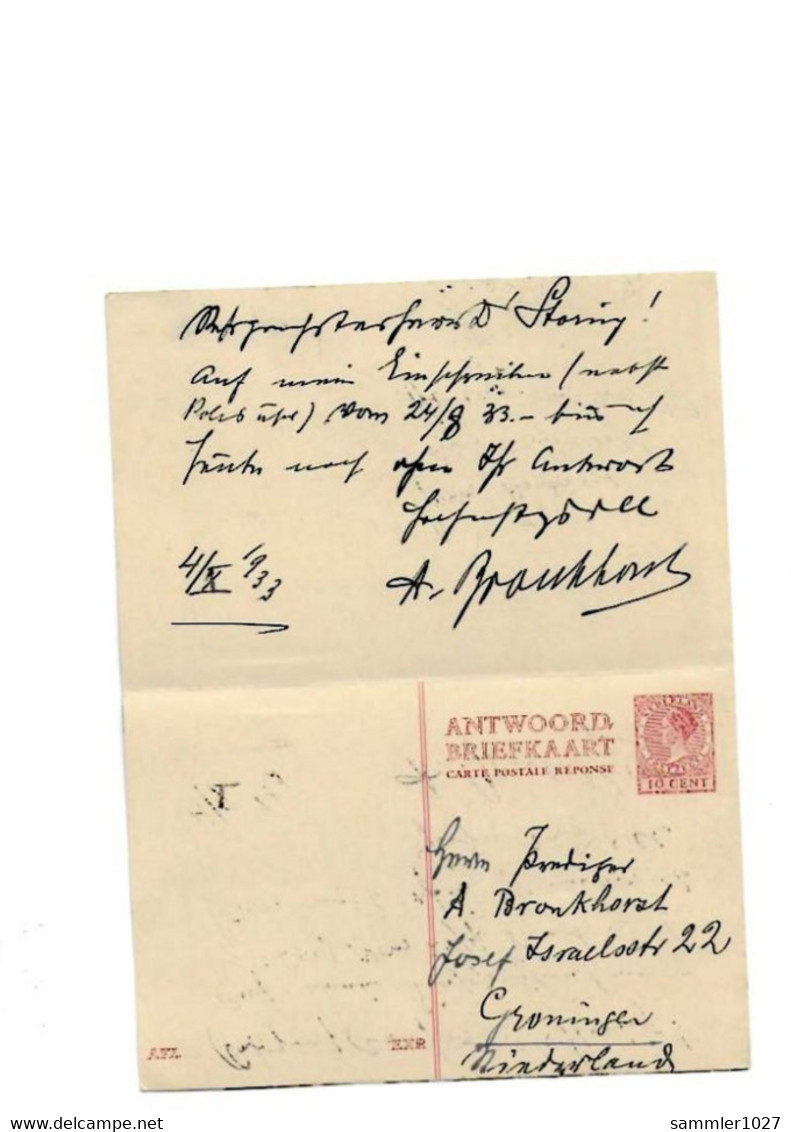 Herrn D Storing!
Auf mein Einschreiben (nebst
) vom 24/8 33.- bin ich
heute noch ohne Ihr Antwort
Hochachtungsvoll
4/X 1933
A. Bronkhorst
ANTWOORD
BRIEFKAART
CARTE POSTALE RÉPONSE
10 CENT
T
Herrn Prediger
A. Bronkhorst
Josef Israelsstr 22
Groningen
Niederland
AFZ.
delcampe.net
sammler1027